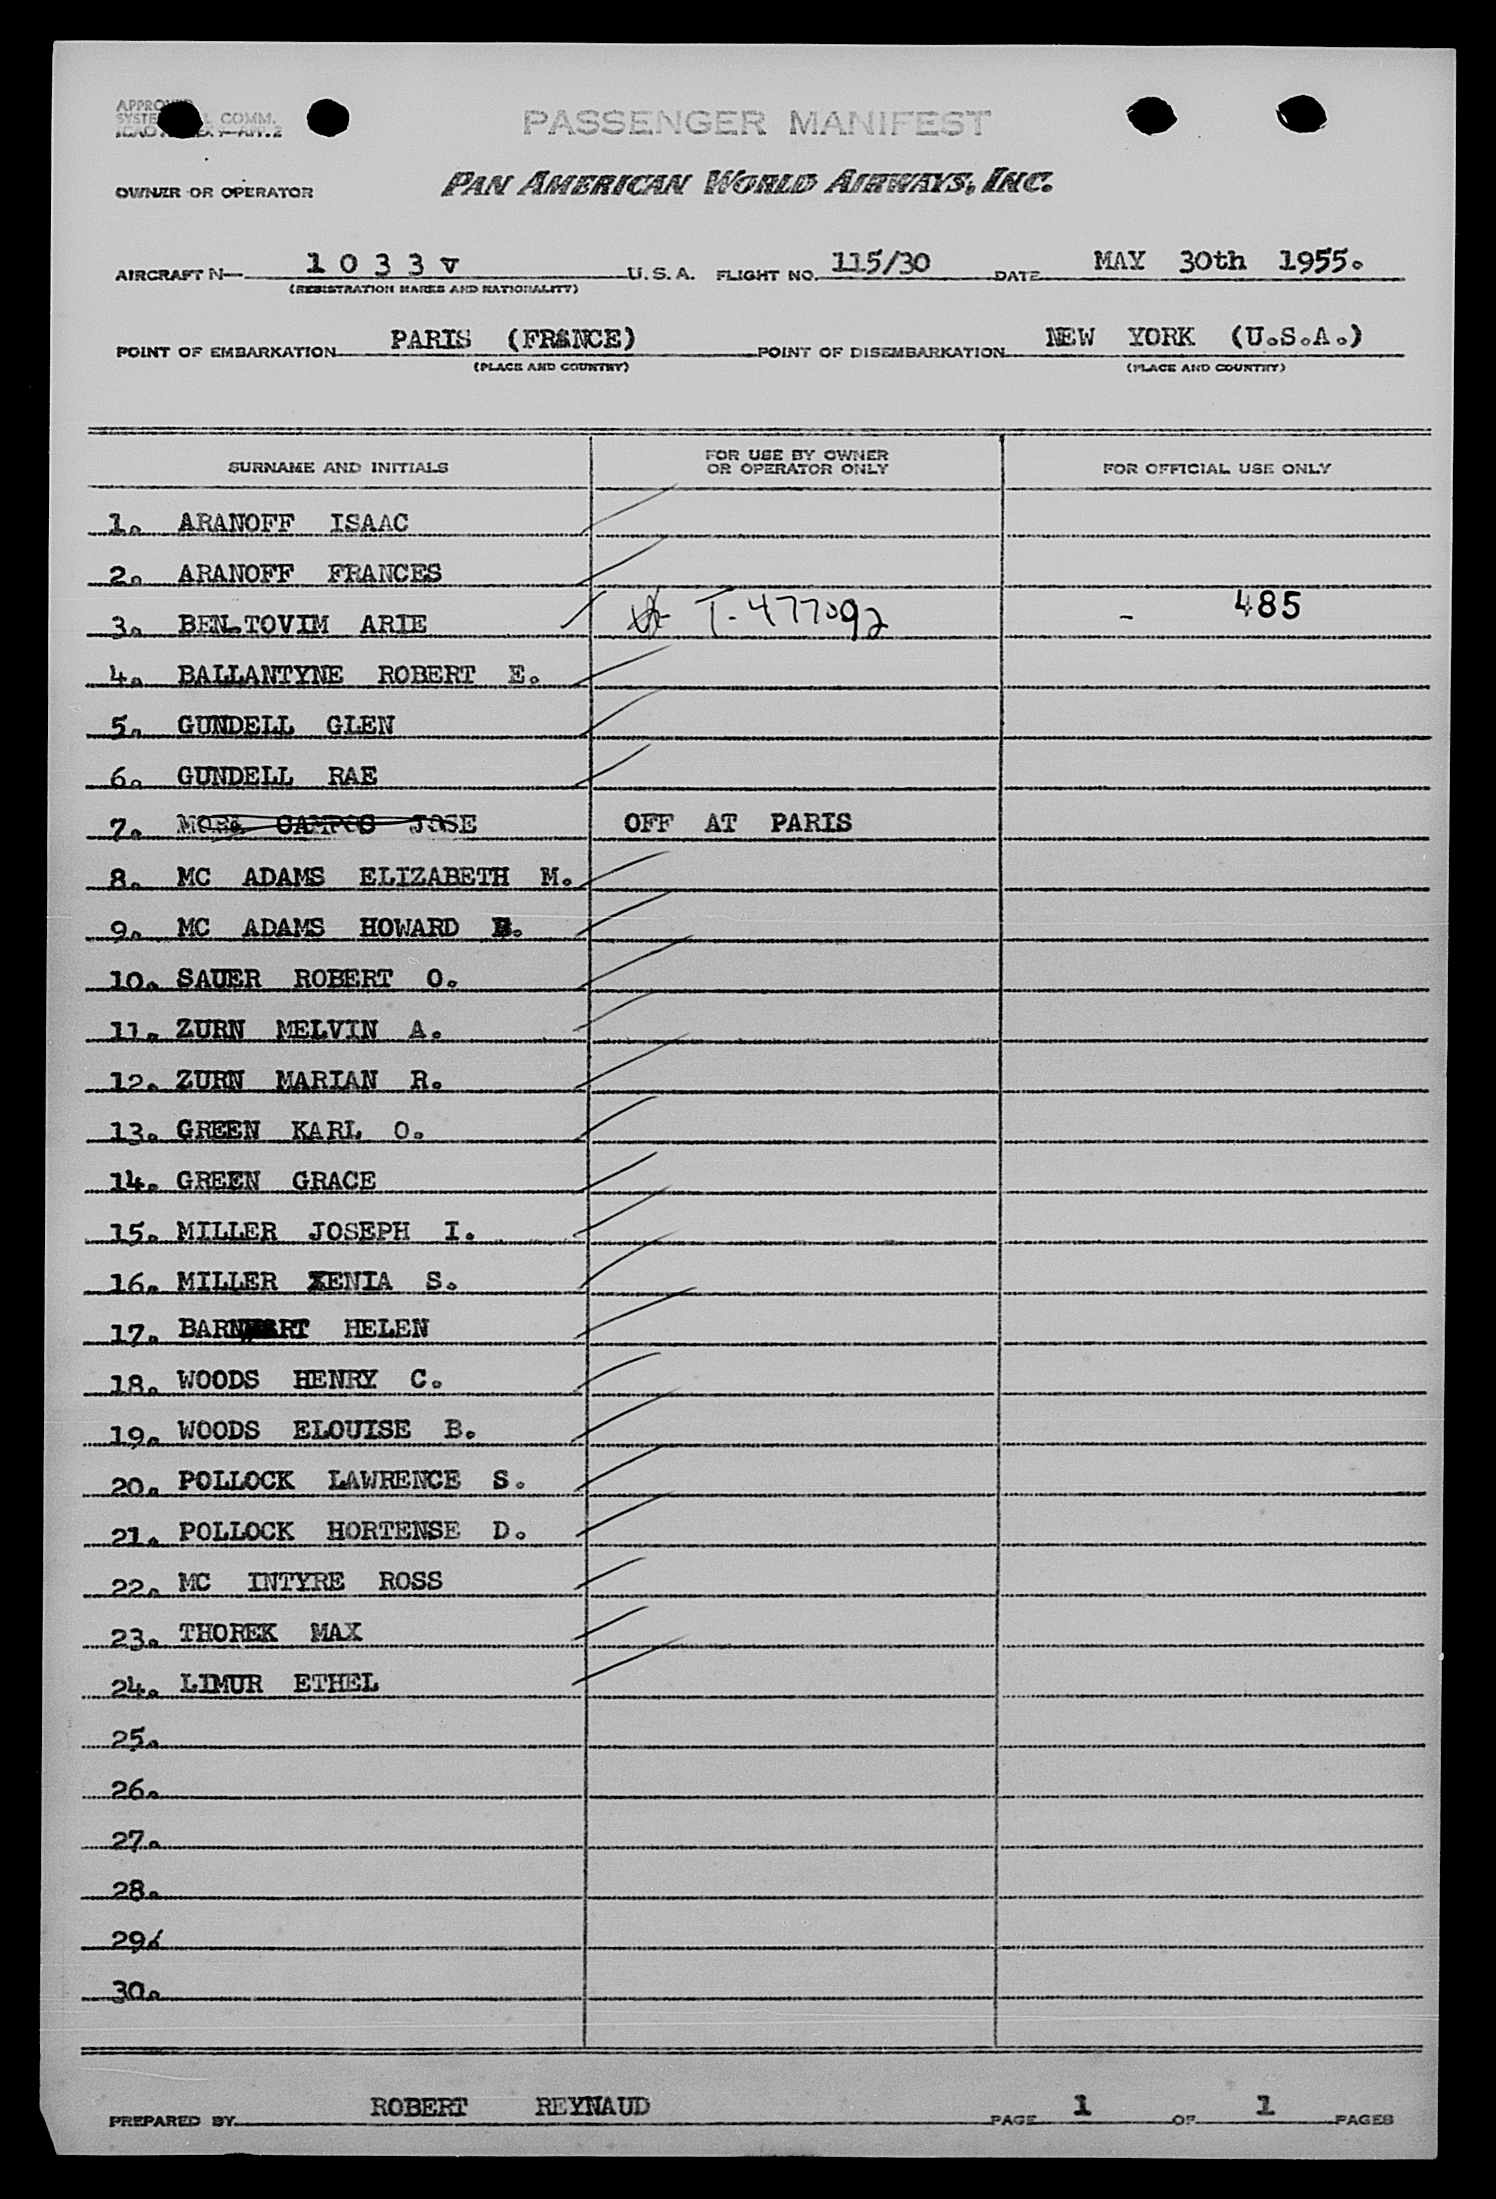 PASSENGER MANIFEST
OWNER OR OPERATOR PAN AMERICAN WORLD AIRWAYS, INC.
AIRCRAFT N— 1033V U.S.A. FLIGHT NO. 115/30 DATE MAY 30th 1955.
(REGISTRATION MARKS AND NATIONALITY)
POINT OF EMBARKATION PARIS (FRANCE) POINT OF DISEMBARKATION NEW YORK (U.S.A.)
(PLACE AND COUNTRY) (PLACE AND COUNTRY)
SURNAME AND INITIALS FOR USE BY OWNER OR OPERATOR ONLY FOR OFFICIAL USE ONLY
1. ARANOFF ISAAC
2. ARANOFF FRANCES
3. BEN-TOVIM ARIE T-477092 - 485
4. BALLANTYNE ROBERT E.
5. GUNDELL GLEN
6. GUNDELL RAE
7. MORA CAMPOS JOSE OFF AT PARIS
8. MC ADAMS ELIZABETH M.
9. MC ADAMS HOWARD
10. SAUER ROBERT O.
11. ZURN MELVIN A.
12. ZURN MARIAN R.
13. GREEN KARL O.
14. GREEN GRACE
15. MILLER JOSEPH I.
16. MILLER XENIA S.
17. BARNHART HELEN
18. WOODS HENRY C.
19. WOODS ELOUISE B.
20. POLLOCK LAWRENCE S.
21. POLLOCK HORTENSE D.
22. MC INTYRE ROSS
23. THOREK MAX
24. LIMUR ETHEL
25.
26.
27.
28.
29.
30.
PREPARED BY ROBERT REYNAUD PAGE 1 OF 1 PAGES